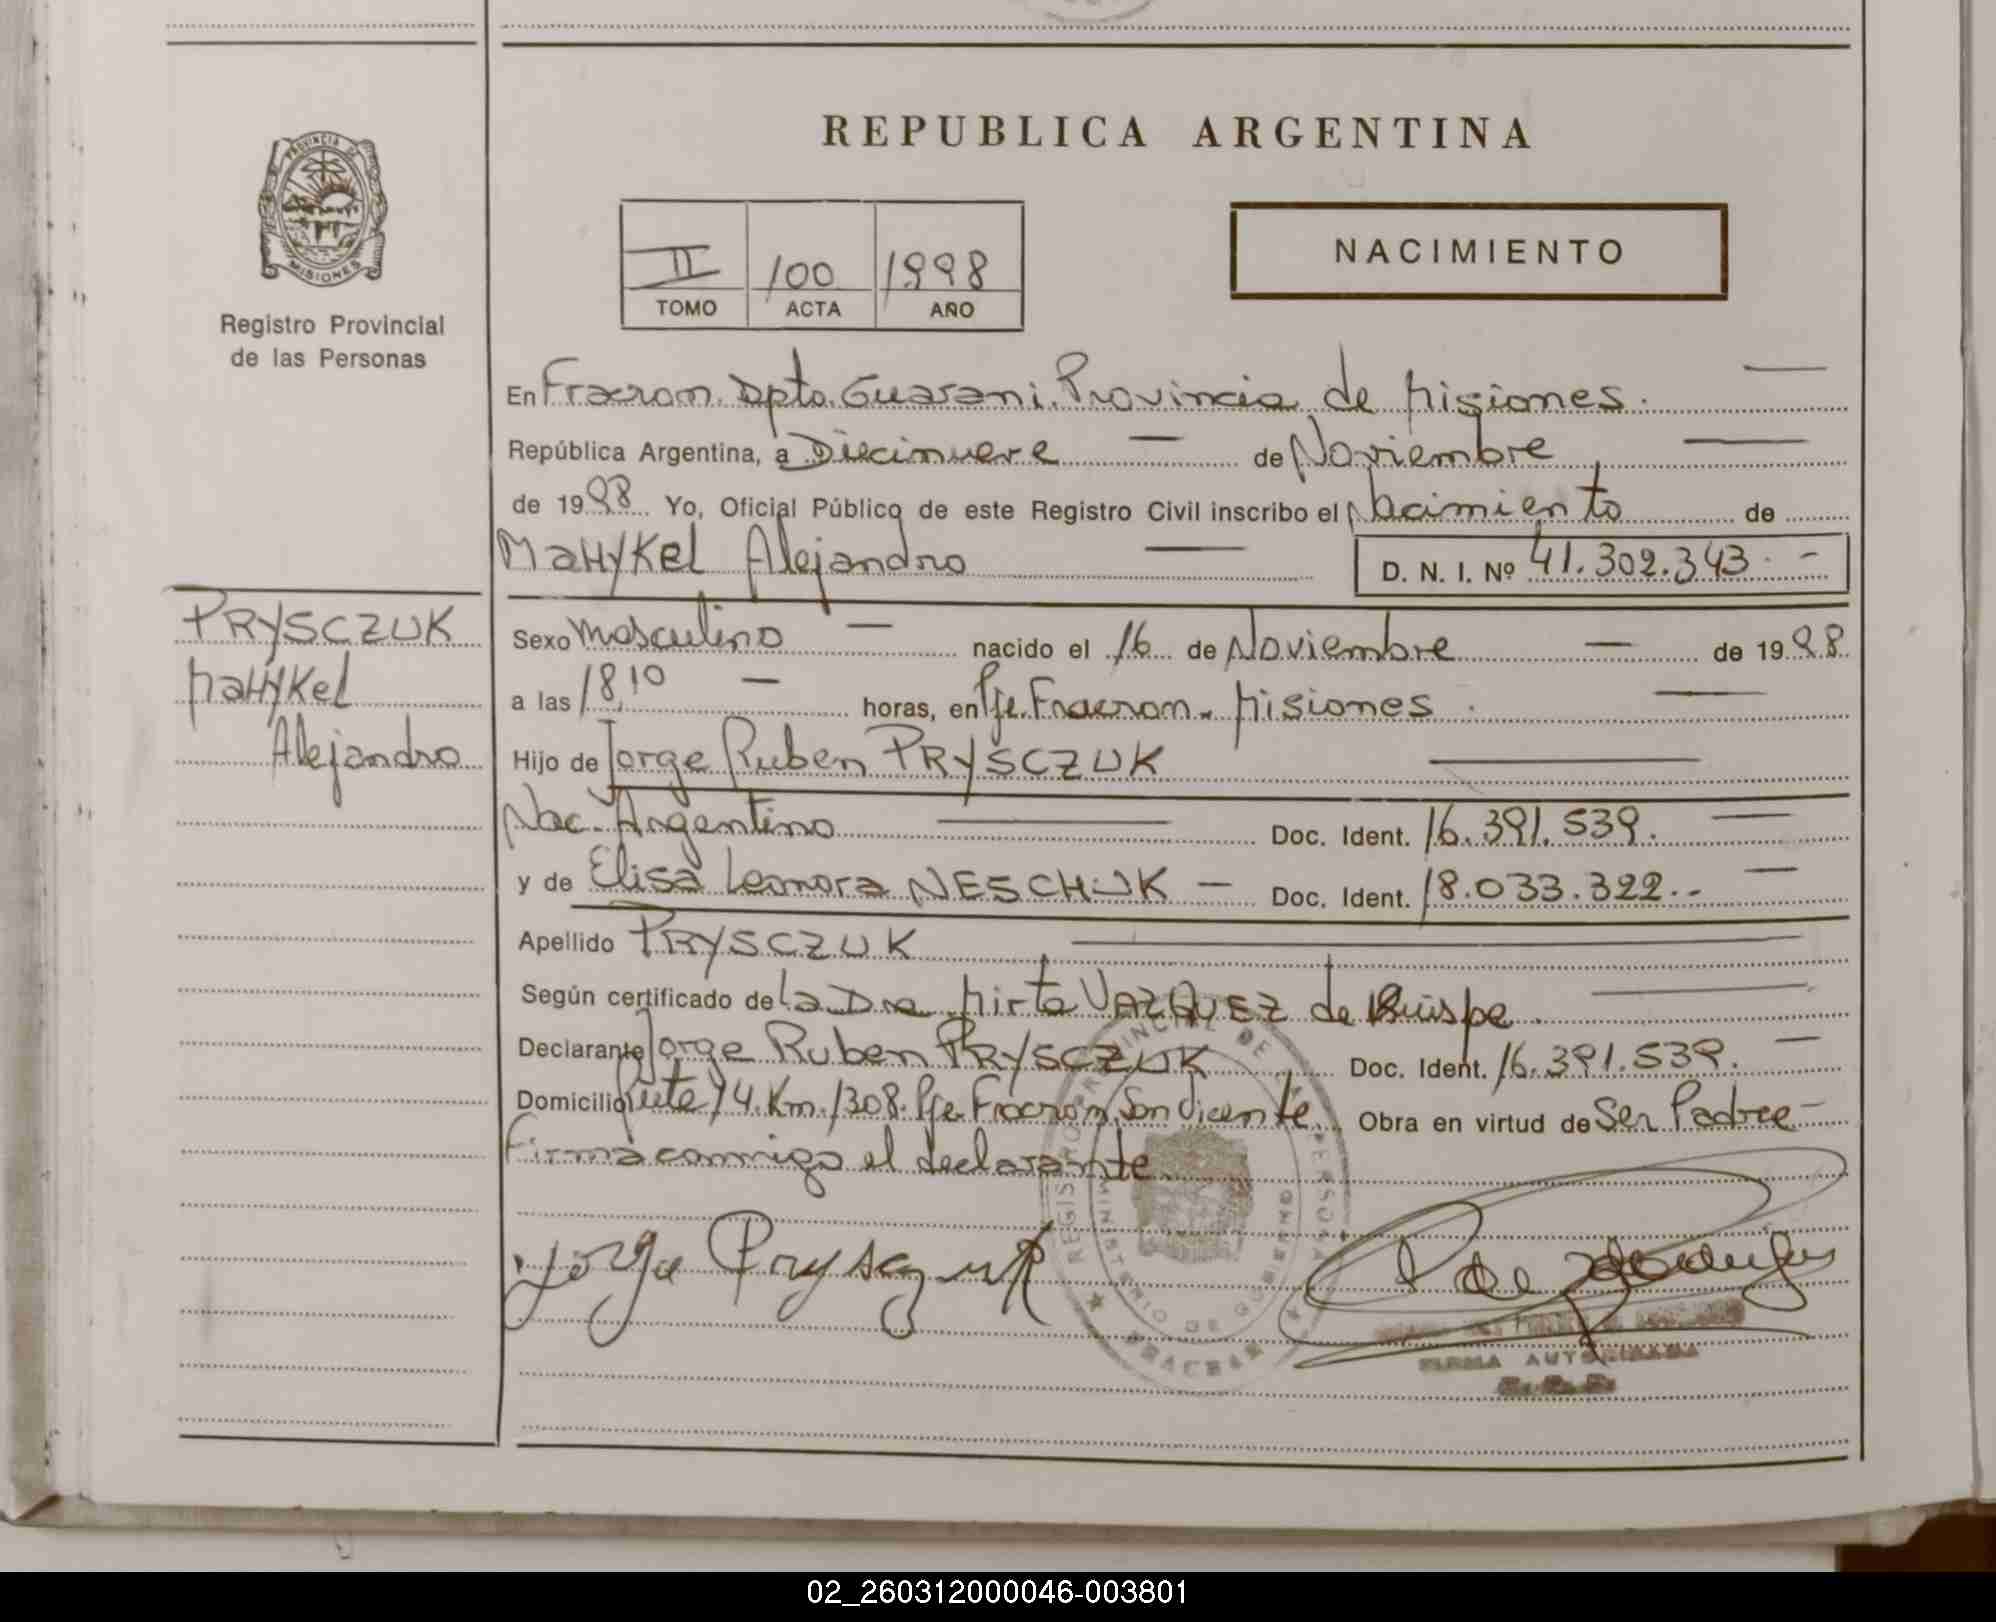 REPUBLICA ARGENTINA
PROVINCIA DE
MISIONES
Registro Provincial
de las Personas
II 100 1998
TOMO ACTA AÑO
NACIMIENTO
En Fracran. Dpto. Guarani. Provincia de Misiones.
República Argentina, a Diecinueve — de Noviembre
de 1998 Yo, Oficial Público de este Registro Civil inscribo el Nacimiento de
MaHyKel Alejandro — D. N. I. Nº 41.302.343.-
PRYSCZUK
MaHyKel
Alejandro
Sexo Masculino — nacido el 16 de Noviembre — de 1998.
a las 18,10 — horas, en Pje. Fracran. Misiones.
Hijo de Jorge Ruben PRYSCZUK
Nac. Argentino — Doc. Ident. 16.391.539.
y de Elisa Leonora NESCHUK — Doc. Ident. 18.033.322.-
Apellido PRYSCZUK
Según certificado de La Dra. Mirta VAZQUEZ de Quispe.
Declarante Jorge Ruben PRYSCZUK Doc. Ident. 16.391.539.
Domicilio Ruta 14. Km. 1308. Pje. Fracran, San Vicente. Obra en virtud de Ser Padre-
Firma conmigo el declarante.
REGISTRO PROVINCIAL DE PERSONAS
MINISTERIO DE GOBIERNO
FRACRAN
Jorge Prysczuk
FIRMA AUTORIZADA
02_260312000046-003801